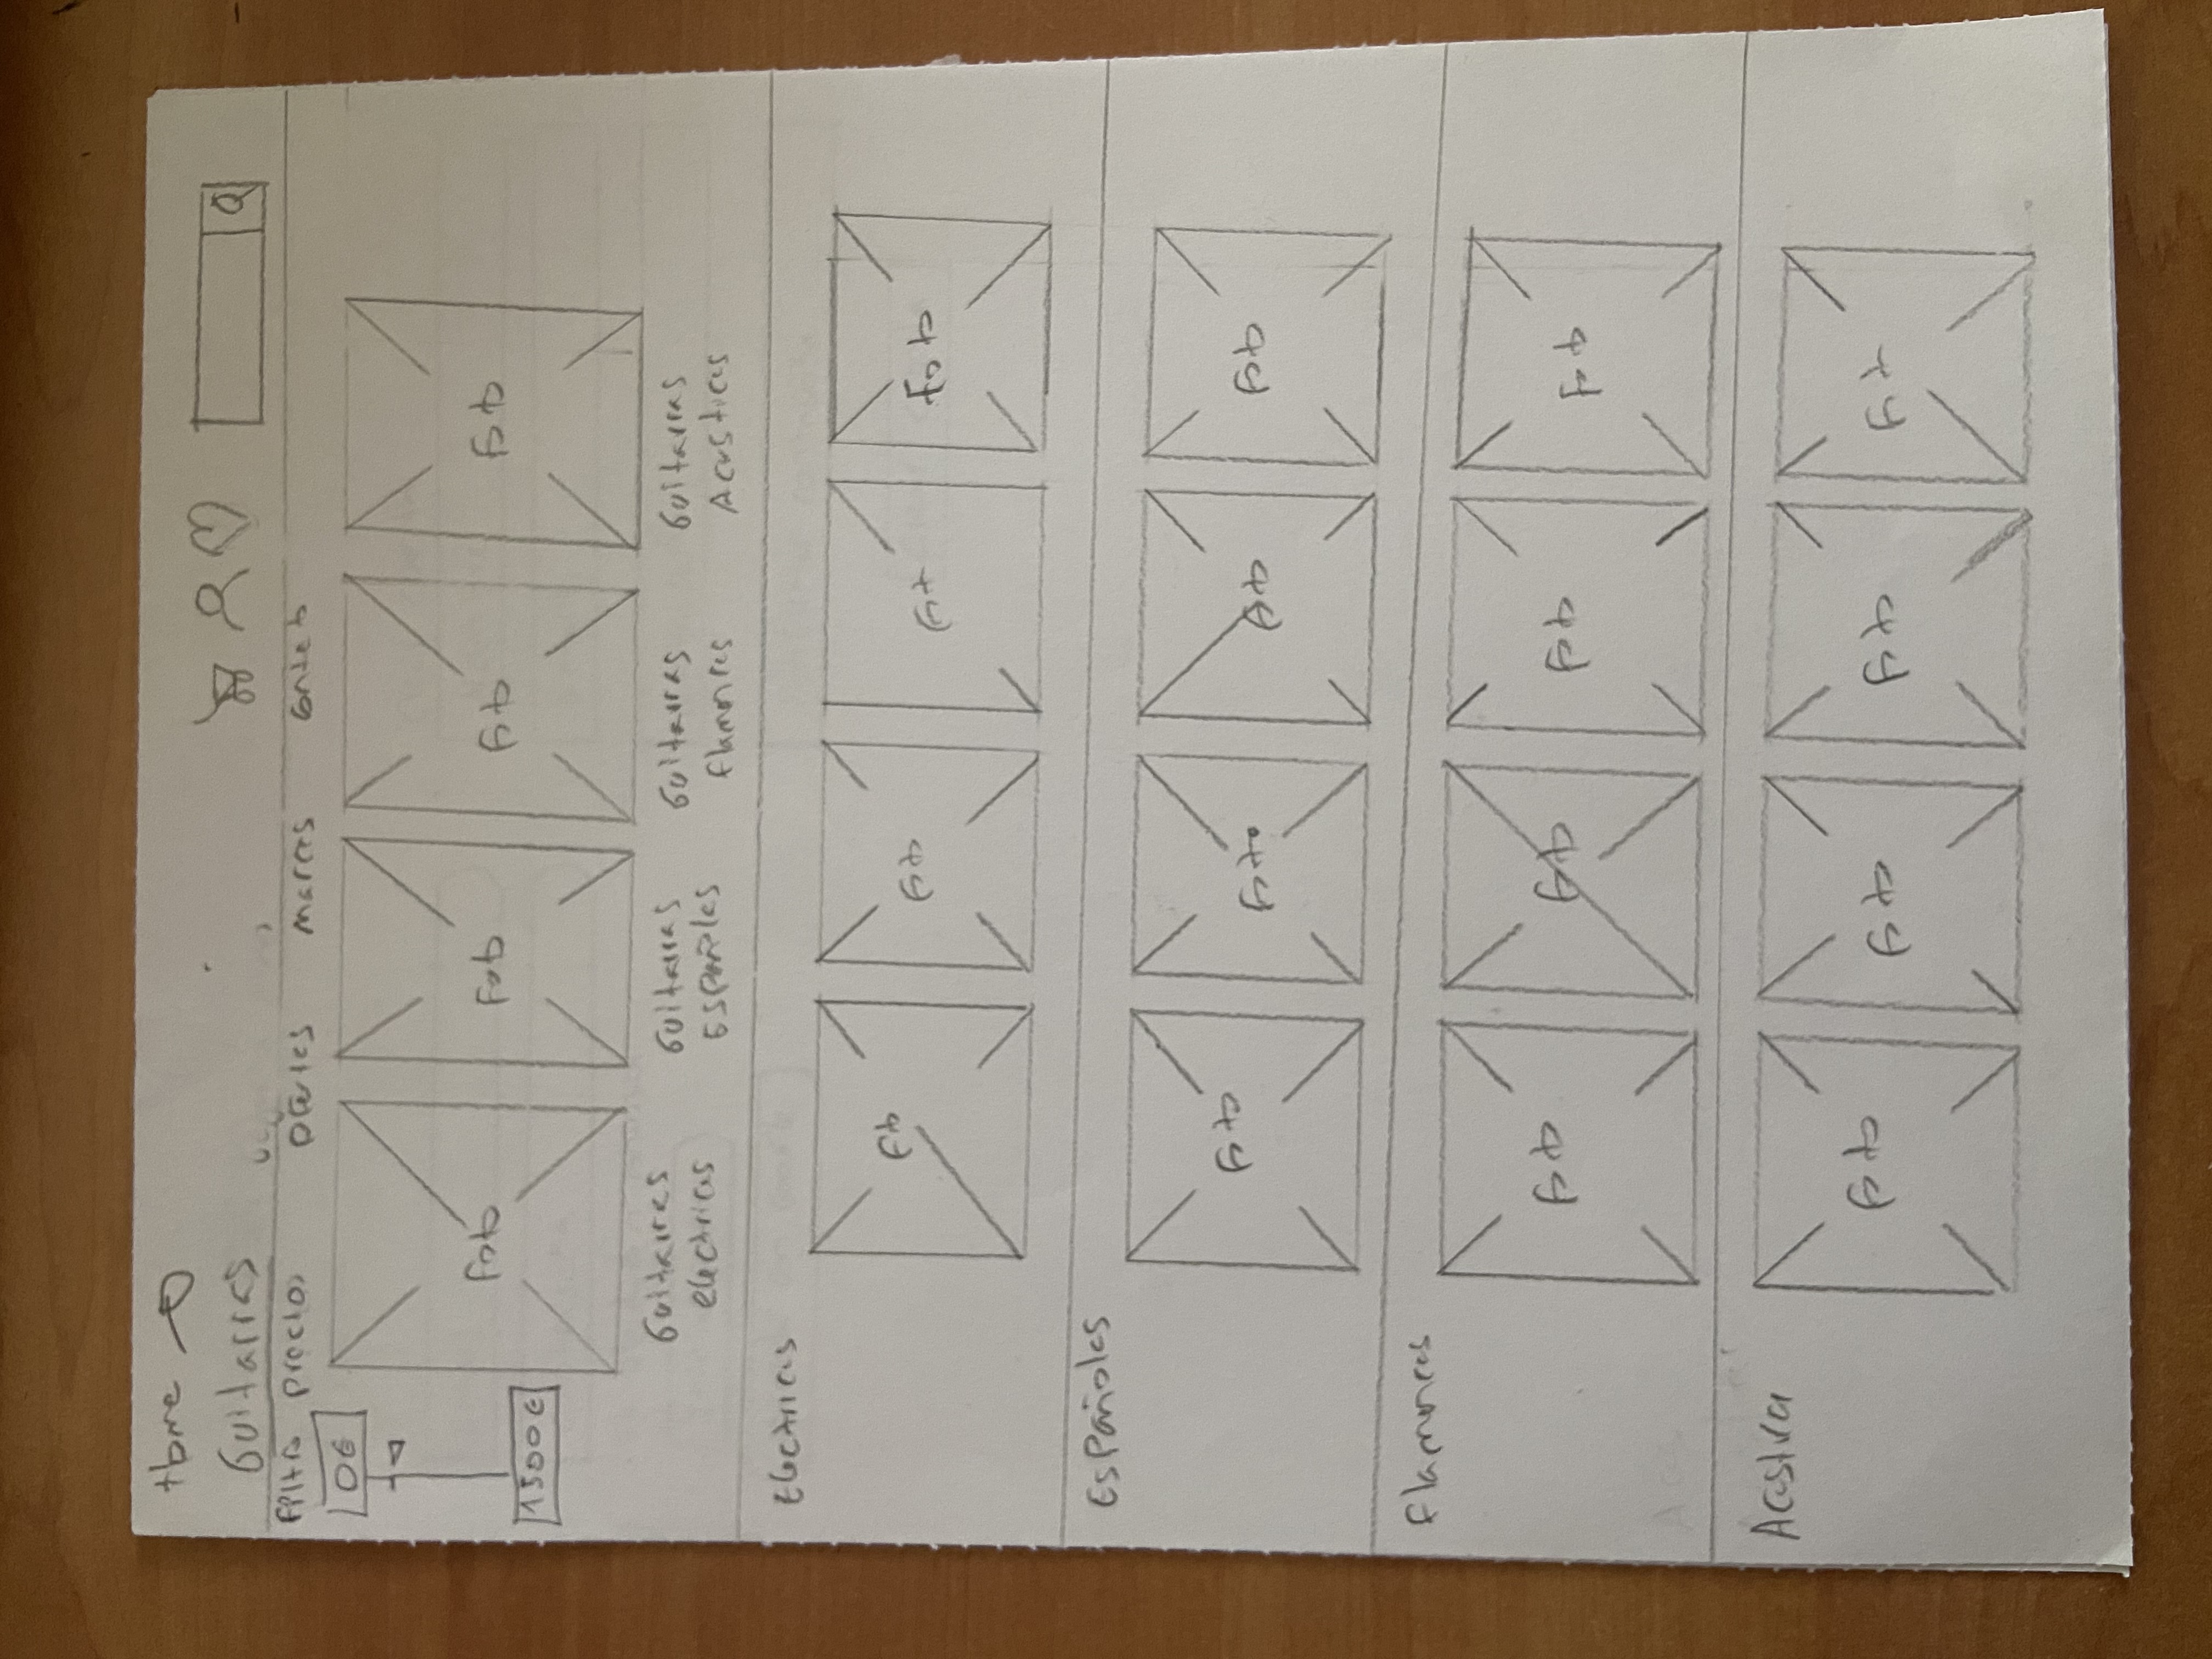 Home
Guitarras
Filtro precios ofertas marcas contacto
0€
1500€
Foto Foto Foto Foto
Guitarras electricas
Guitarras Españolas
Guitarras flamencas
Guitarras Acusticas
Electricas
Foto Foto Fot Foto
Españolas
Foto Foto Foto Foto
flamencas
Foto Foto Foto Foto
Acustica
Foto Foto Foto Fot